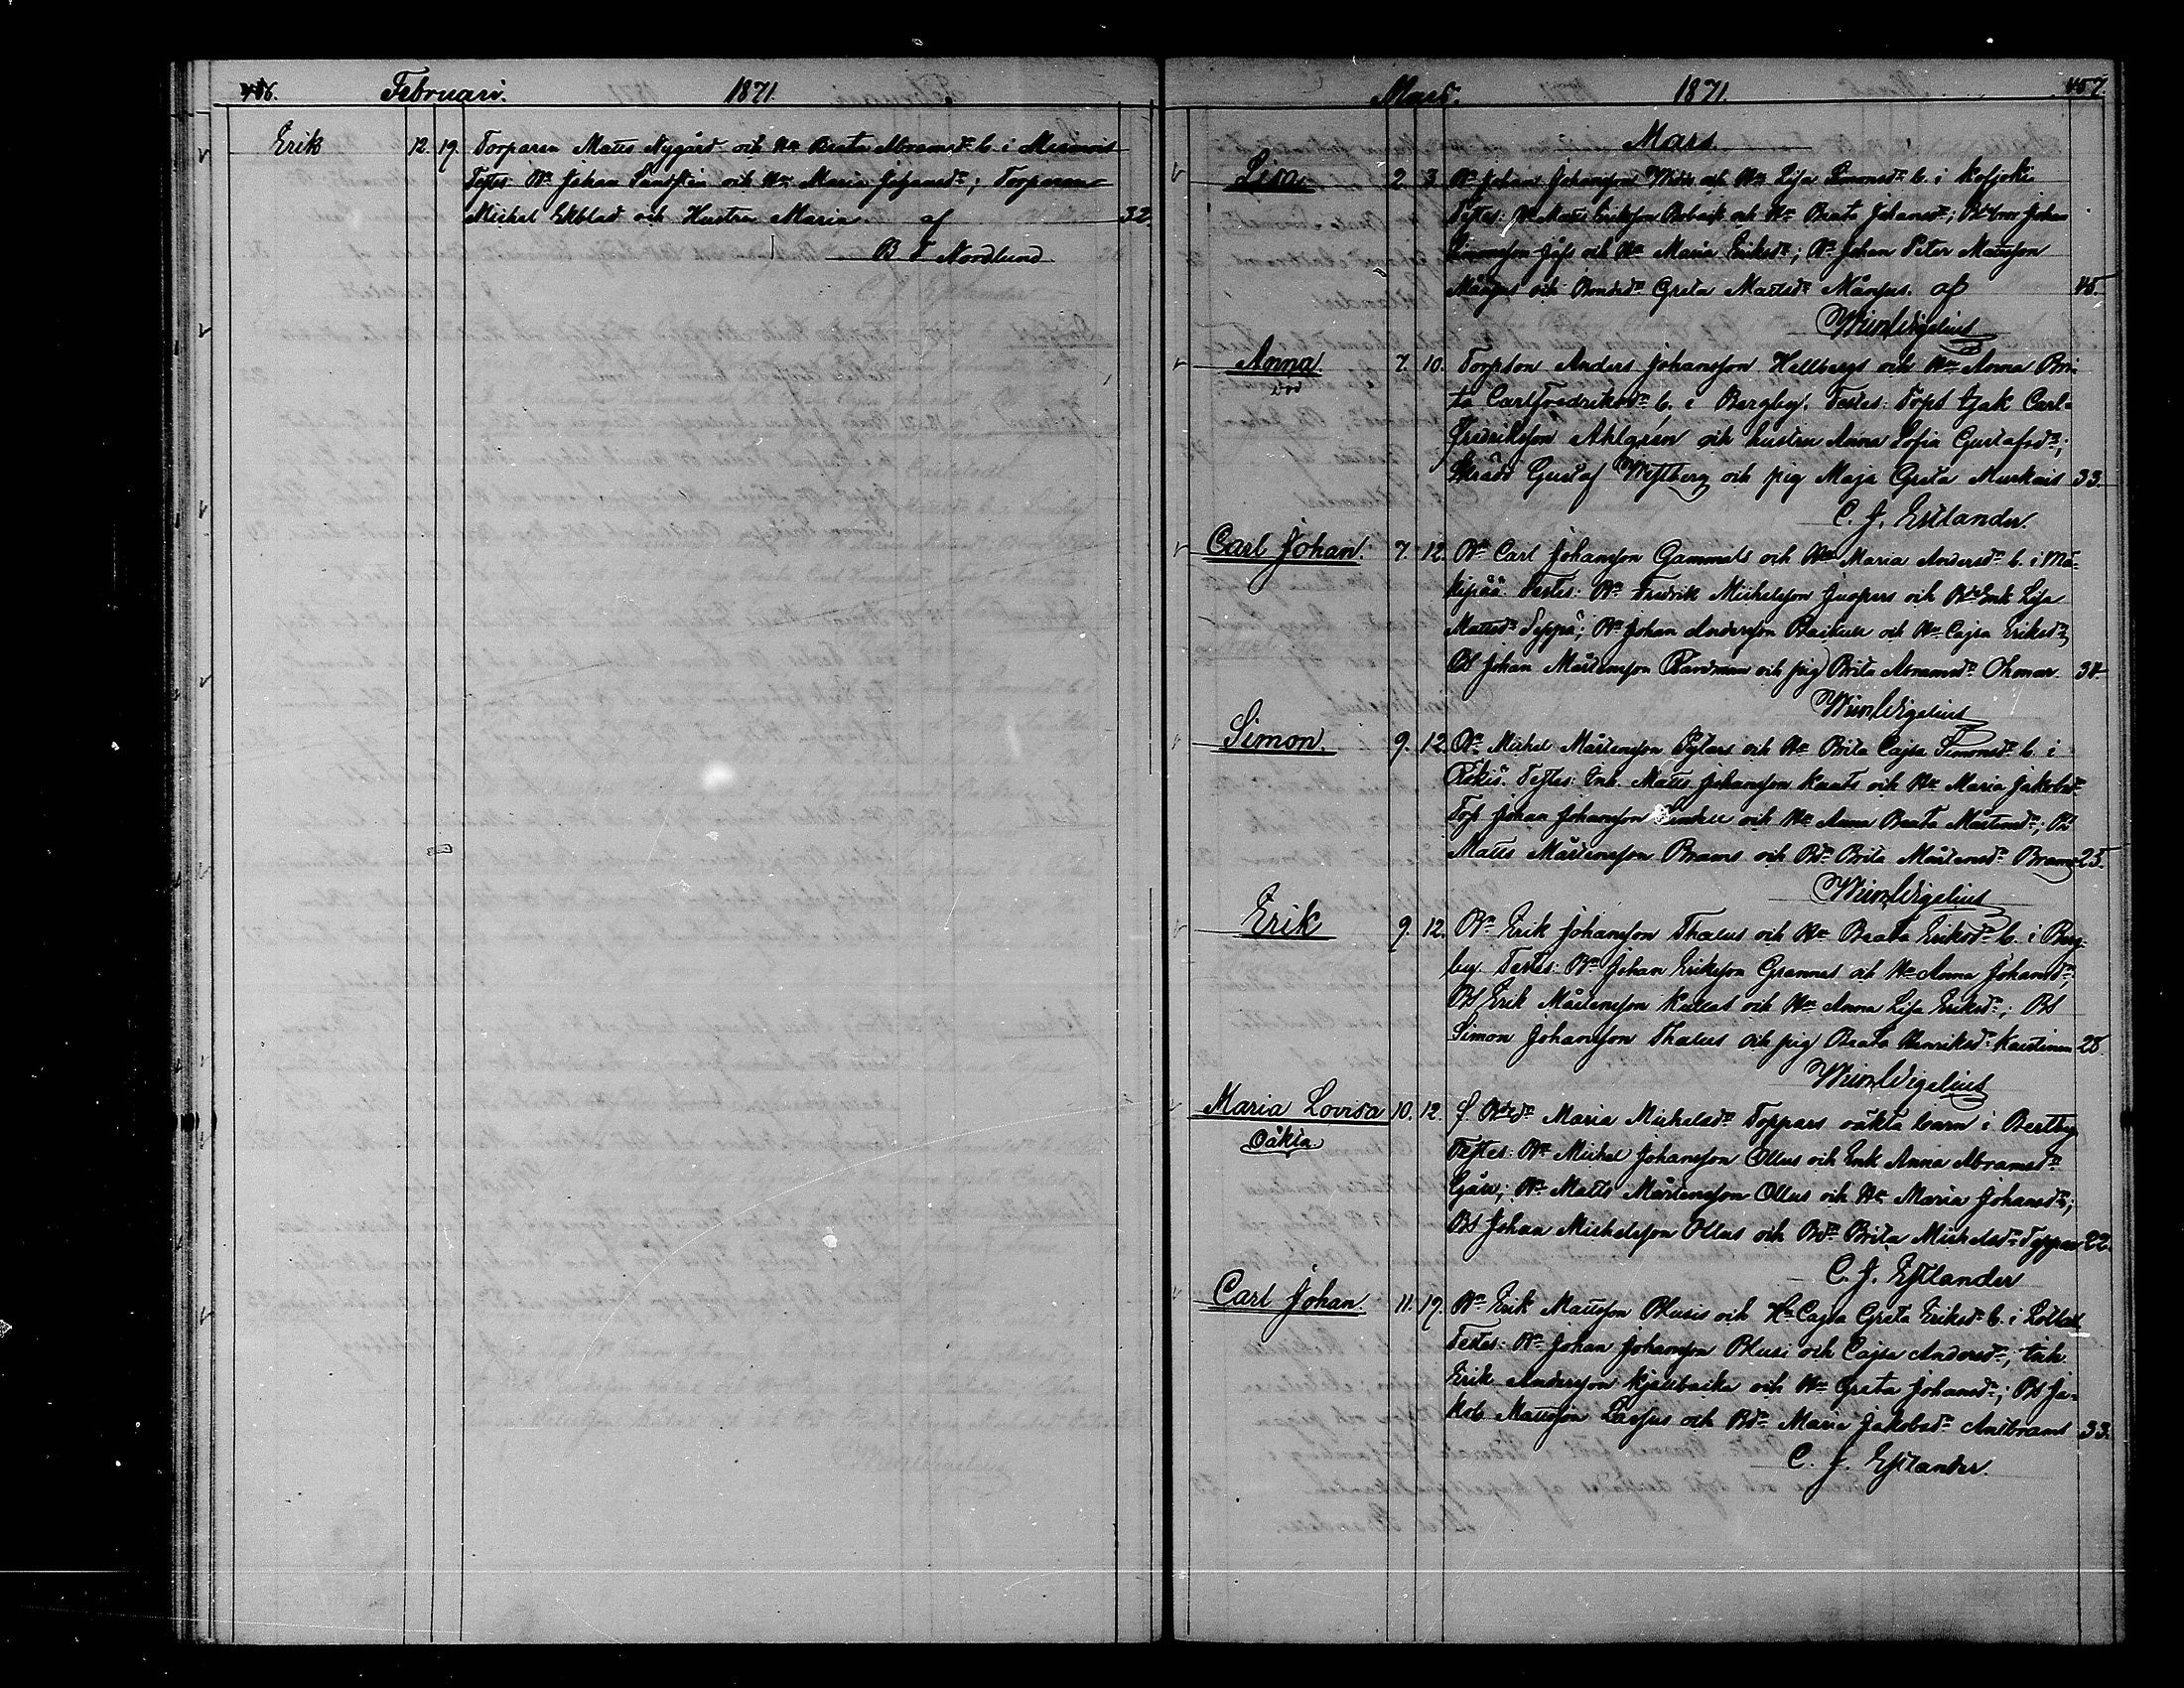 Februari. 1871.
Erik 12. 19. Torparen Matts Nygård och Hu Beata Abramsdr b. i
Testes: Bn Johan Sundsten och Hu Maria Johansdr; Torparen
Michel Ekblad och Hustru Maria. af 32
B F Nordlund
Mars. 1871. 407.
Mars
Lisa 2. 3. Bn Johan Johansson och Hu Lisa Simonsdr b. i Kofjoki
Testes: Bn Matts Eriksson och Hu Beata Johansdr; Johan
Simonsson och Hu Maria Eriksdr; Bn Johan Peter Mattsson
Månsus och Bondedr Greta Mattsdr Månsus. af 45.
Wigelius
Anna. 7. 10. Torpson Anders Johansson Hellbergs och Hu Anna Bri-
död
ta Carlfredriksdr b. i Bergby. Testes: Torps Isak Carl-
Fredriksson Ahlgren och hustru Anna Sofia Gustafsdr;
Skrädd Gustaf Westberg och pig Maja Greta Murkais 33.
C. J. Estlander.
Carl Johan. 7. 12. Bn Carl Johansson Gammals och Hu Maria Andersdr b. i Mä-
kipää. Testes: Bn Fredrik Michelsson Juopers och Enk Lisa
Mattsdr Seppä; Bn Johan Andersson och Hu Cajsa Eriksdr;
Bs Johan Mårtensson och pig Brita Abramsdr 34
Wigelius
Simon. 9. 12. Bn Michel Mårtensson och Hu Brita Cajsa Simonsdr b. i
Testes: Inh. Matts Johansson Knuts och Hu Maria Jakobsdr
Torp Johan Johansson och Hu Anna Beata Mårtensdr; Bs
Matts Mårtensson Brams och Bdr Brita Mårtensdr Brams 25.
Wigelius
Erik 9. 12. Bn Erik Johansson Thalus och Hu Beata Eriksdr b. i Berg-
by. Testes: Bn Johan Eriksson Grannas och Hu Anna Johansdr;
Bs Erik Mårtensson Kullas och Hu Anna Lisa Eriksdr; Bs
Simon Johansson Thalus och pig Beata Henriksdr Kaustinen 28.
Wigelius
Maria Lovisa 10. 12. f Bdr Maria Michelsdr Toppars oäkta barn i Bertby
Oäkta
Testes: Bn Michel Johansson Ollus och Enk Anna Abramsdr
Bn Matts Mårtensson Ollus och Hu Maria Johansdr;
Bs Johan Michelsson Ollus och Bdr Brita Michelsdr Toppar 22.
C. J. Estlander
Carl Johan. 11. 19. Bn Erik Mattsson Blusis och Hu Cajsa Greta Eriksdr b. i
Testes: Bn Johan Johansson Blusi och Cajsa Andersdr; Inh.
Erik Andersson Kjellbacka och Hu Greta Johansdr; Bs Ja-
kob Mattsson Lassus och Bdr Maria Jakobsdr Antbrams 33.
C. J. Estlander.